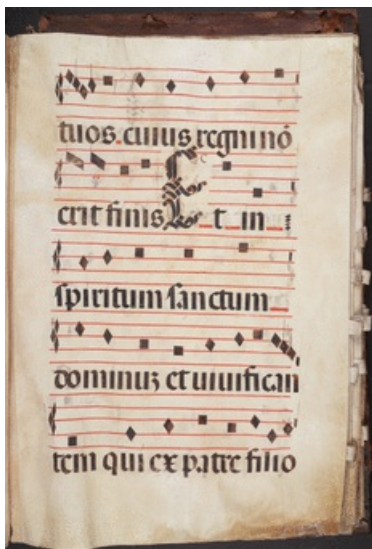 tuos. cuius regni nō
erit finis Et in
spiritum sanctum
dominuꝫ et uiuifican
tem qui ex patre filio